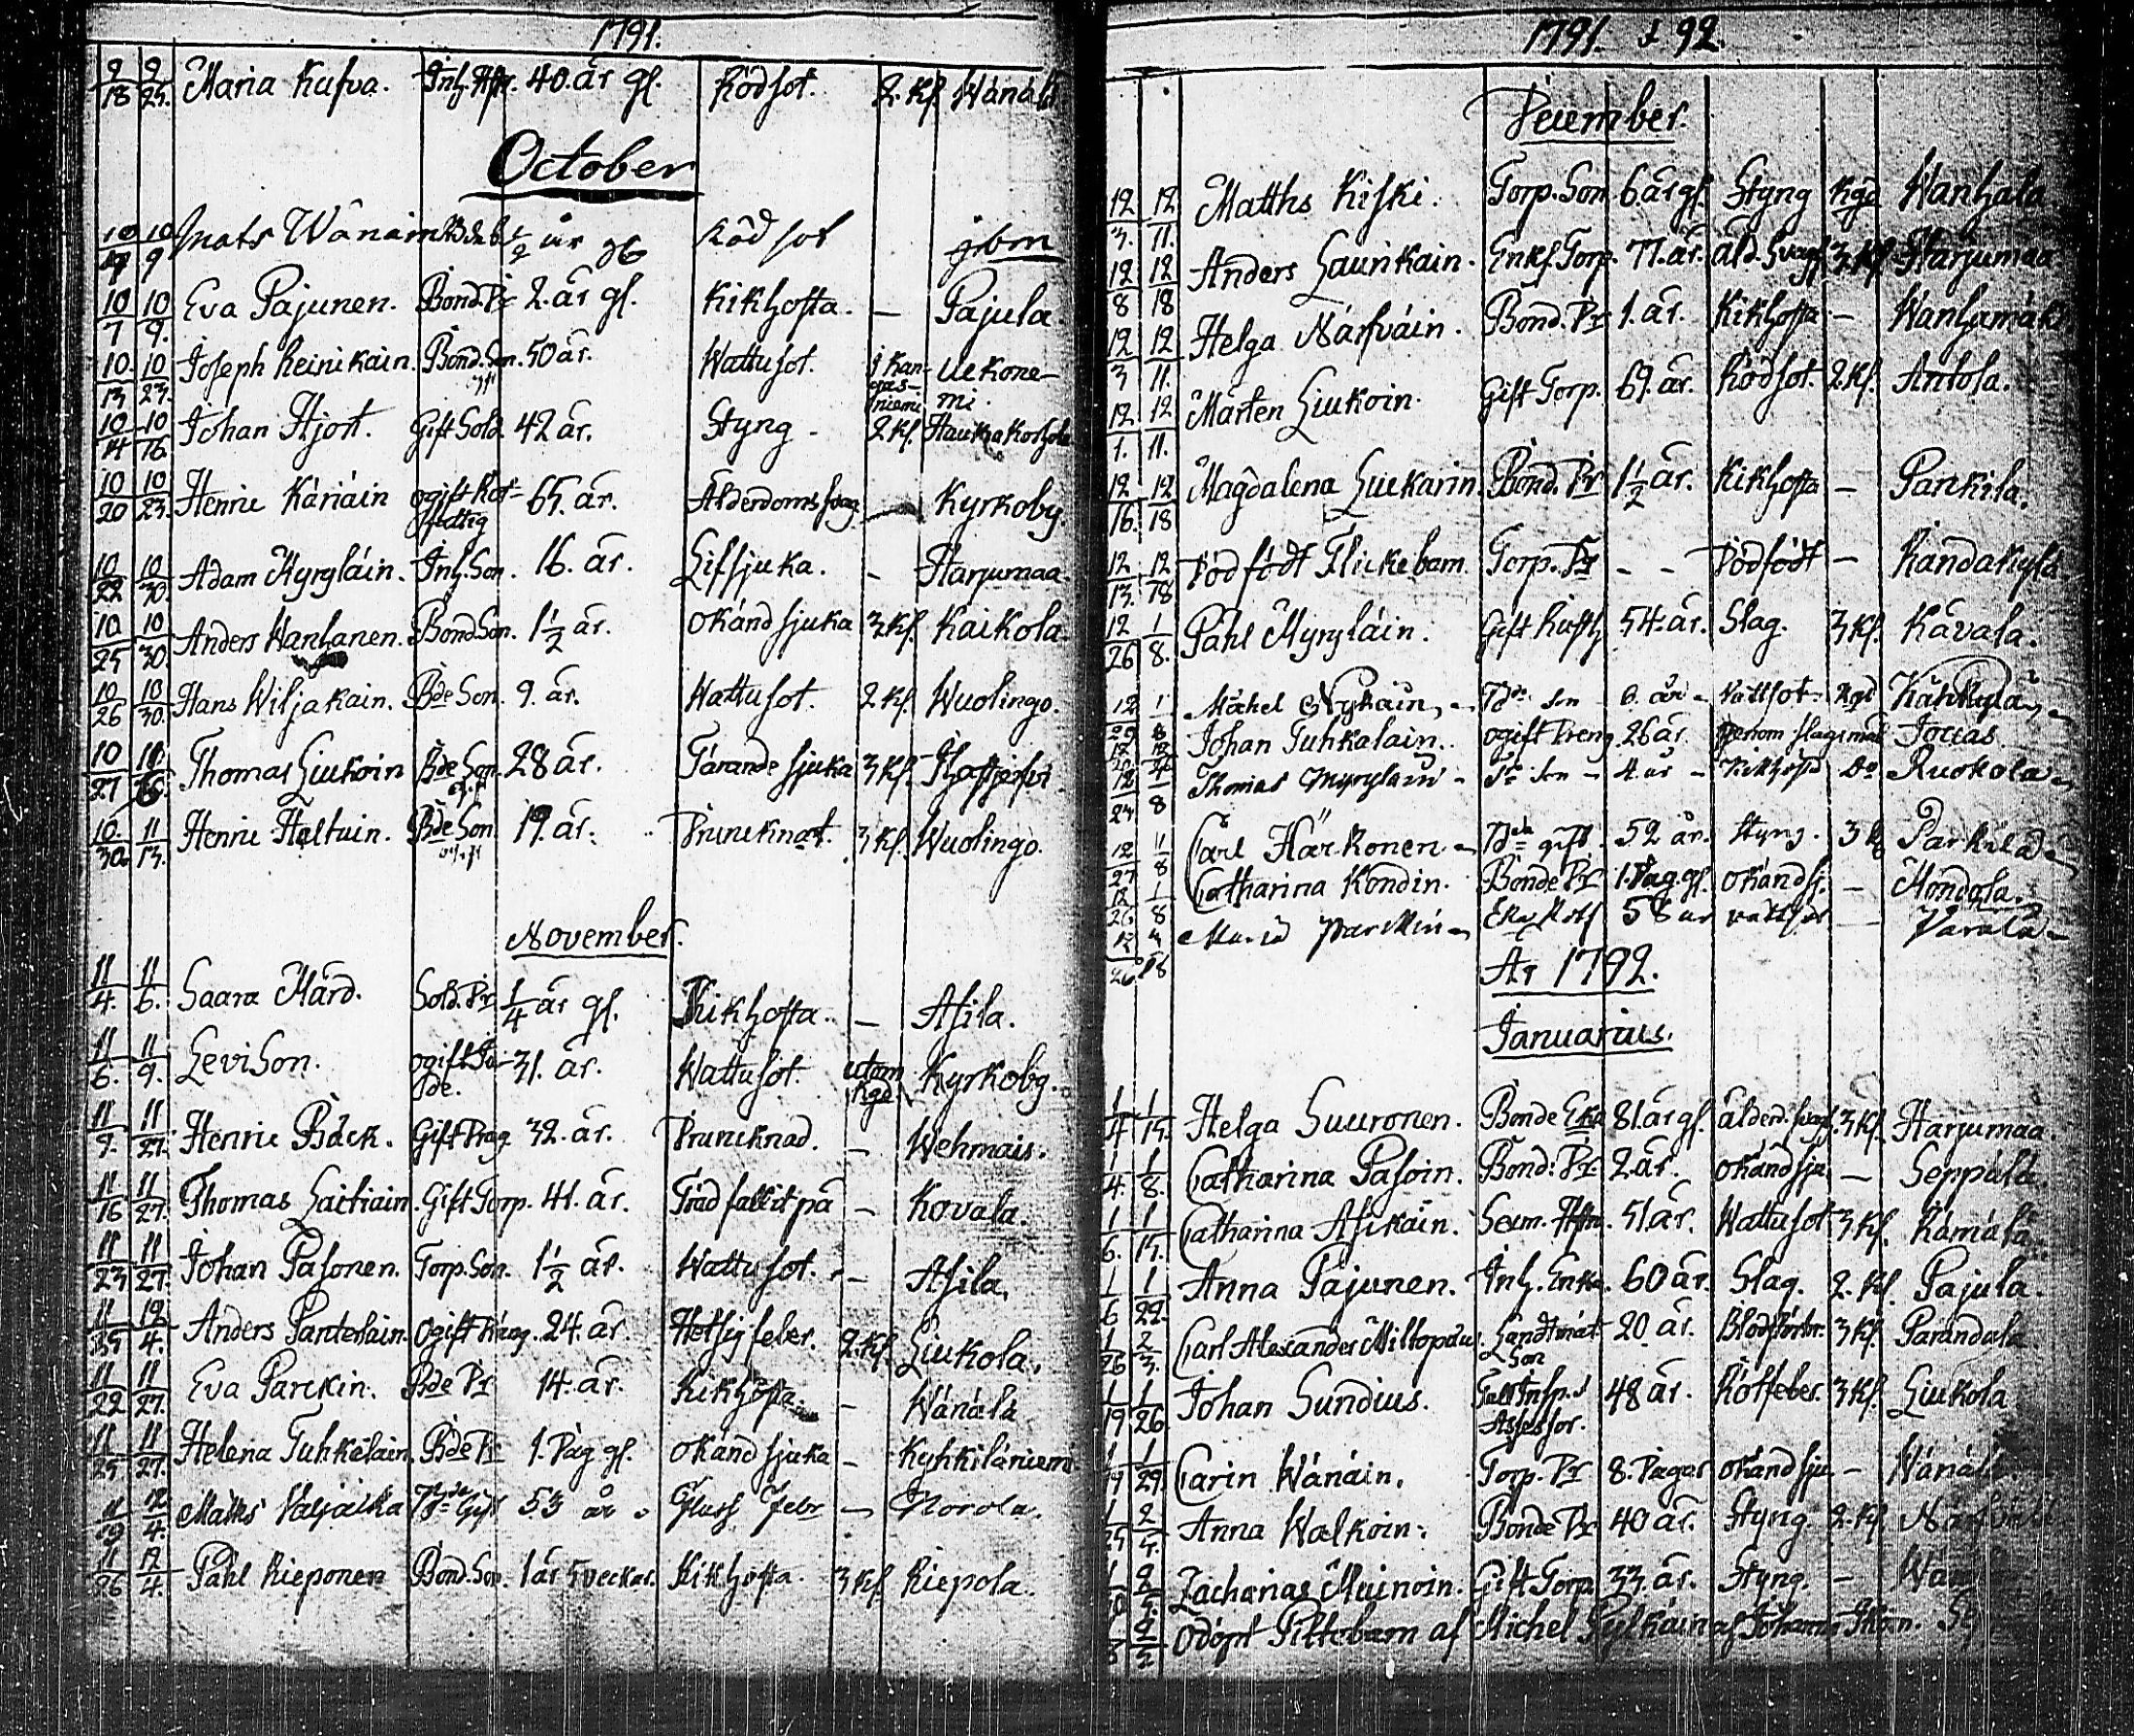 1791.
9/18 9/25. Maria Kufva. Inh. Hstr. 40. år gl. Rödsot. 2. Kf. Wänälä
October
10 10/9 Mats Wänäin Bde b. 1/2 år Rödsot ibm
10/7 10/9. Eva Pajunen. Bond. Pr 2. år gl. Kikhosta. — Pajula.
10./13 10/23. Joseph Reinikain. Bond. Son. gift 50 år. Wattusot. i Kan-gas-niemi Uekone-mi.
10/14 10/16. Johan Hjort. Gift Sold. 42 år. Styng - 2 Kf.
10/20 10/23. Henric Käriäin ogift Rot-fattig 65. år. Ålderdoms svag — Kyrkoby.
10/22 10/30. Adam Myryläin. Inh. Son. 16. år. Lifsjuka. - Harjumaa.
10/25 10/30. Anders Wanhanen. Bond Son. 1 1/2 år. okänd sjuka 3 Kf. Kaikola.
10/26 10/30. Hans Wiljakain. Bde Son. 9. år. Wattusot. 2 Kf. Wuolingo.
10/27 Thomas Liukoin Bde Son. gift 28 år. Tärande sjuka 3 Kf.
10./30. 11/13. Henric Haltuin. Bde Son ogift 19. år. Drunknat. 3 Kf. Wuolingo.
November.
11/4. 11/6. Saara Mård. Sold. Pr 1/4 år gl. Kikhosta. — Asila.
11/6. 11/9. Levison. ogift 31. år. Wattusot. utom Kgd. Kyrkoby.
11/9. 11/27. Henric Bäck. Gift Drag. 32. år. Druncknad. — Wehmais.
11/16 11/27. Thomas Laitiain. Gift Torp. 41. år. Träd fallit på — Kovala.
11/23 11/27. Johan Pasonen. Torp. Son. 1 1/2 år. Wattusot. - Asila.
11/25 12/4. Anders Panterlain. Ogift Dräng. 24. år. Hetsig feber. 2. Kf. Liukola.
11/22 11/27. Eva Parckin. Bde Pr 14. år. Kikhosta. — Wänälä
11/25 11/27. Helena Tuhkalain. Bde Pr 1. Dag gl. okänd sjuka — Kyhkiläniemi
11/19 12/4. Matts Valjakka Bde Gift 53 år Febr — Norola.
11/26 12/4. Påhl Rieponen Bond. Son. 1 år 5 veckor. Kikhosta. 3 Kf. Riepola.
1791. & 92.
December.
12/3. 12/11. Matths Kiski. Torp. Son 6. år gl. Styng Kgd Wanhala
12/8 12/18 Anders Laurikain. Enkl. Torp. 77. år. åld. svagh. 3 Kf Harjumaa
12/3 12/11. Helga Närfväin. Bond. Pr 1. år. Kikhosta — Wanhamäki
12/1. 12/11. Mårten Liukoin. Gift Torp. 69. år. Rödsot. 2. Kf. Antola.
12/16. 12/18 Magdalena Liukarin. Bond. Pr 1 1/2 år. Kikhosta — Parkila.
12/13. 12/18 Dödfödt Flickebarn. Torp. Pr - - Dödfödt — Randakylä
12/26 1/8. Påhl Myryläin. Gift Rusth. 54. år. Slag. 3 Kf. Kävala.
12/29 1/8 Mickel Nykäin, Bde Son 6. år Vattsot Kgd
Johan Tuhkalain. ogift Dreng. 26 år. genom slagsmål Jouas.
12/24 1/8 Thomas Myryläin - Son - 4. år - Kikhosta Do Ruokola
12/27 1/8 Carl Härkonen Bde gift. 52 år. Styng. 3 Kf Parkila
12/26 1/8 Catharina Kondin. Bonde Pr 1. Dag. gl. okänd sj. — Mondola.
12/26 Maria Parckin Rotf 58 år vattsot —
År 1792.
Januarius.
1/4 1/15. Helga Suuronen. Bonde Eka 81. år gl. ålderd. svagh. 3 Kf. Harjumaa.
1/4. 1/8. Catharina Pasoin. Bond. Pr 2. år. okänd sju. — Seppälä.
1/6. 1/15. Catharina Asikain. 51. år. Wattusot 3 Kf. Rämälä.
1/6 1/22. Anna Pajunen. Inh. Enka. 60 år. Slag. 2. Kf. Pajula.
1/26 2/3. Carl Alexander Miltopæus. Landtmät. Son 20. år. Blodstörtn. 3 Kf. Parandala
1/19 1/26. Johan Sundius. Assessor. 48 år. Rötfeber. 3 Kf. Liukola
1/19 1/29. Carin Wänäin. Torp. Pr 8. Dagar okänd sju — Wänälä
1/25 2/5. Anna Walkoin. Bonde Pr 40 år. Styng. 2. Kf.
Zacharias Muinoin. Gift Torp. 33. år. Styng. —
Odöpt Piltebarn af Michel Pylkäin af Johann